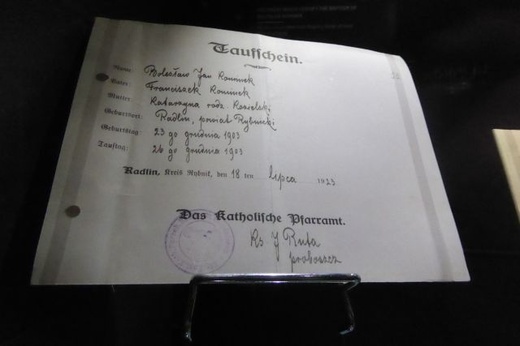 Taufschein.
Name: Bolesław Jan Kominek
Vater: Franciszek Kominek
Mutter: Katarzyna rodz. Kozielski
Geburtsort: Radlin, powiat Rybnicki
Geburtstag: 23 go grudnia 1903
Tauftag: 26 go grudnia 1903
Radlin, Kreis Rybnik, den 18 ten lipca 1923
Das Katholische Pfarramt.
Ks. J Ruta
proboszcz